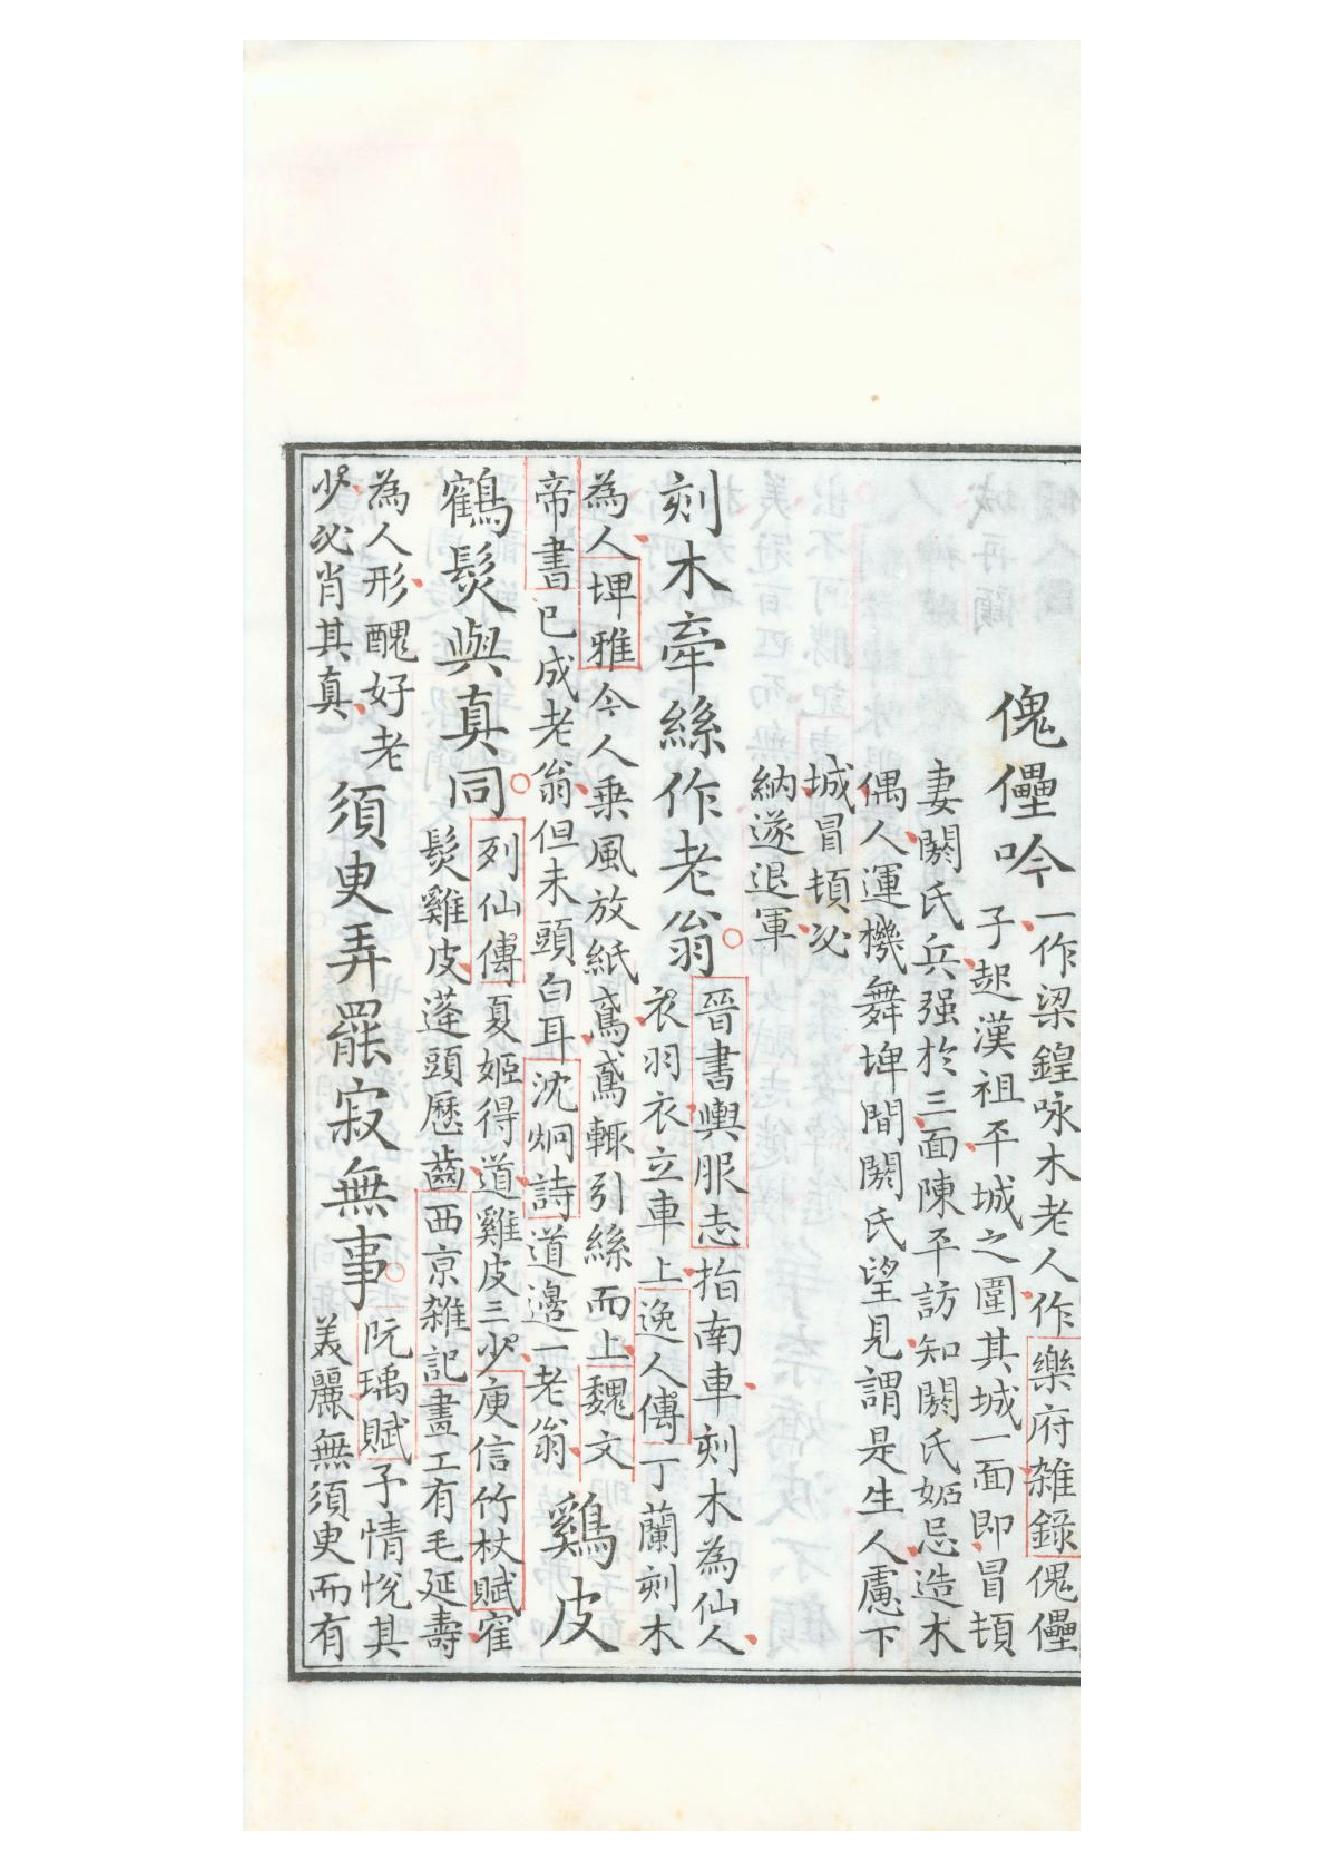 傀儡吟
一作梁鍠咏木老人作樂府雜錄傀儡
子起漢祖平城之圍其城一面即冒頓
妻閼氏兵强於三面陳平訪知閼氏妬忌造木
偶人運機舞埤間閼氏望見謂是生人慮下
城冒頓必
納遂退軍
刻木牽絲作老翁
晉書輿服志指南車刻木為仙人
衣羽衣立車上逸人傳丁蘭刻木
為人埤雅今人乗風放紙鳶鳶輙引絲而上魏文
帝書已成老翁但未頭白耳沈炯詩道邊一老翁
鷄皮
鶴髮與真同
列仙傳夏姬得道雞皮三少庾信竹杖賦寉
髮雞皮蓬頭歷齒西京雜記畫工有毛延壽
為人形醜好老
少必肖其真
須臾弄罷寂無事
阮瑀賦予情悅其
美麗無須臾而有